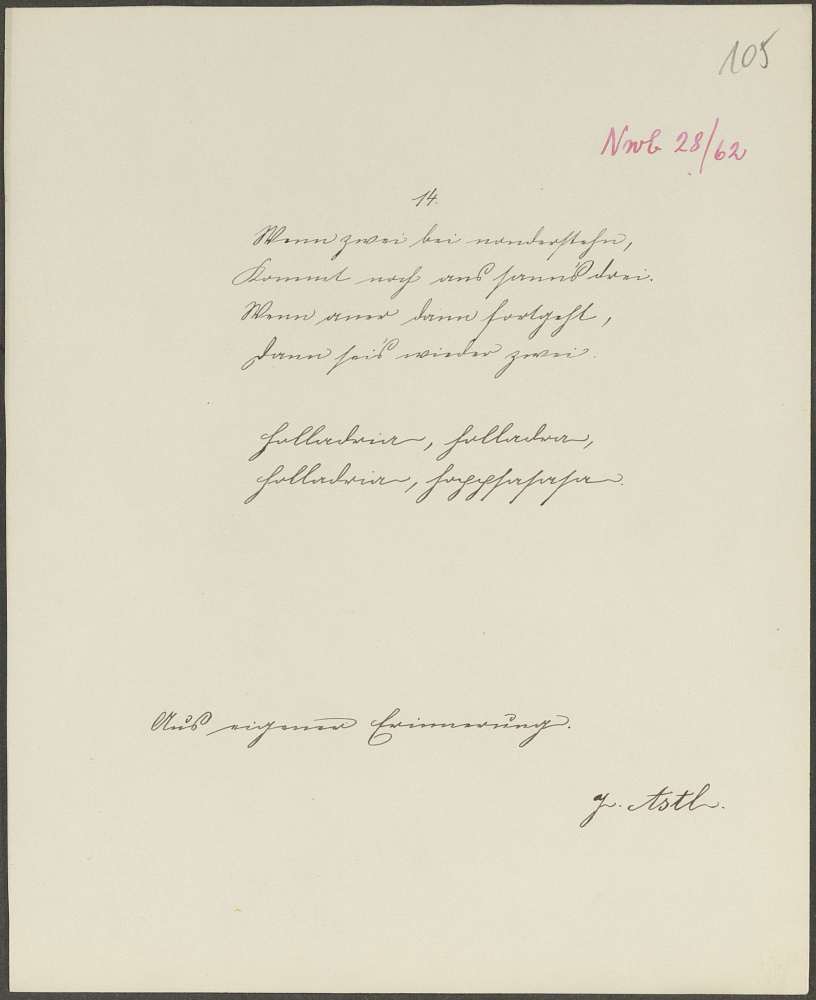 105
Nwb 28/62
14.
Wenn zwei bei nanderstehn,
Kommt noch ans sanns drei.
Wenn aner dann fortgeht,
Dann seis wieder zwei.
holladria, holladra,
holladria, hoppsasasa.
Aus eigener Erinnerung.
J. Astl.